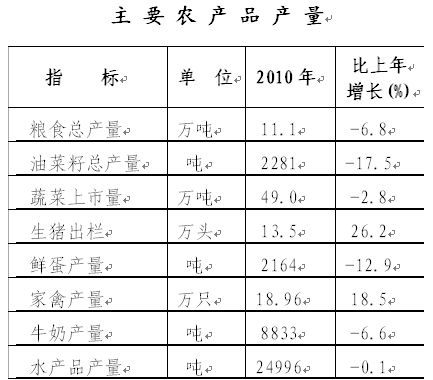 主要农产品产量
指 标 单 位 2010年 比上年
增长(%)
粮食总产量 万吨 11.1 -6.8
油菜籽总产量 吨 2281 -17.5
蔬菜上市量 万吨 49.0 -2.8
生猪出栏 万头 13.5 26.2
鲜蛋产量 吨 2164 -12.9
家禽产量 万只 18.96 18.5
牛奶产量 吨 8833 -6.6
水产品产量 吨 24996 -0.1